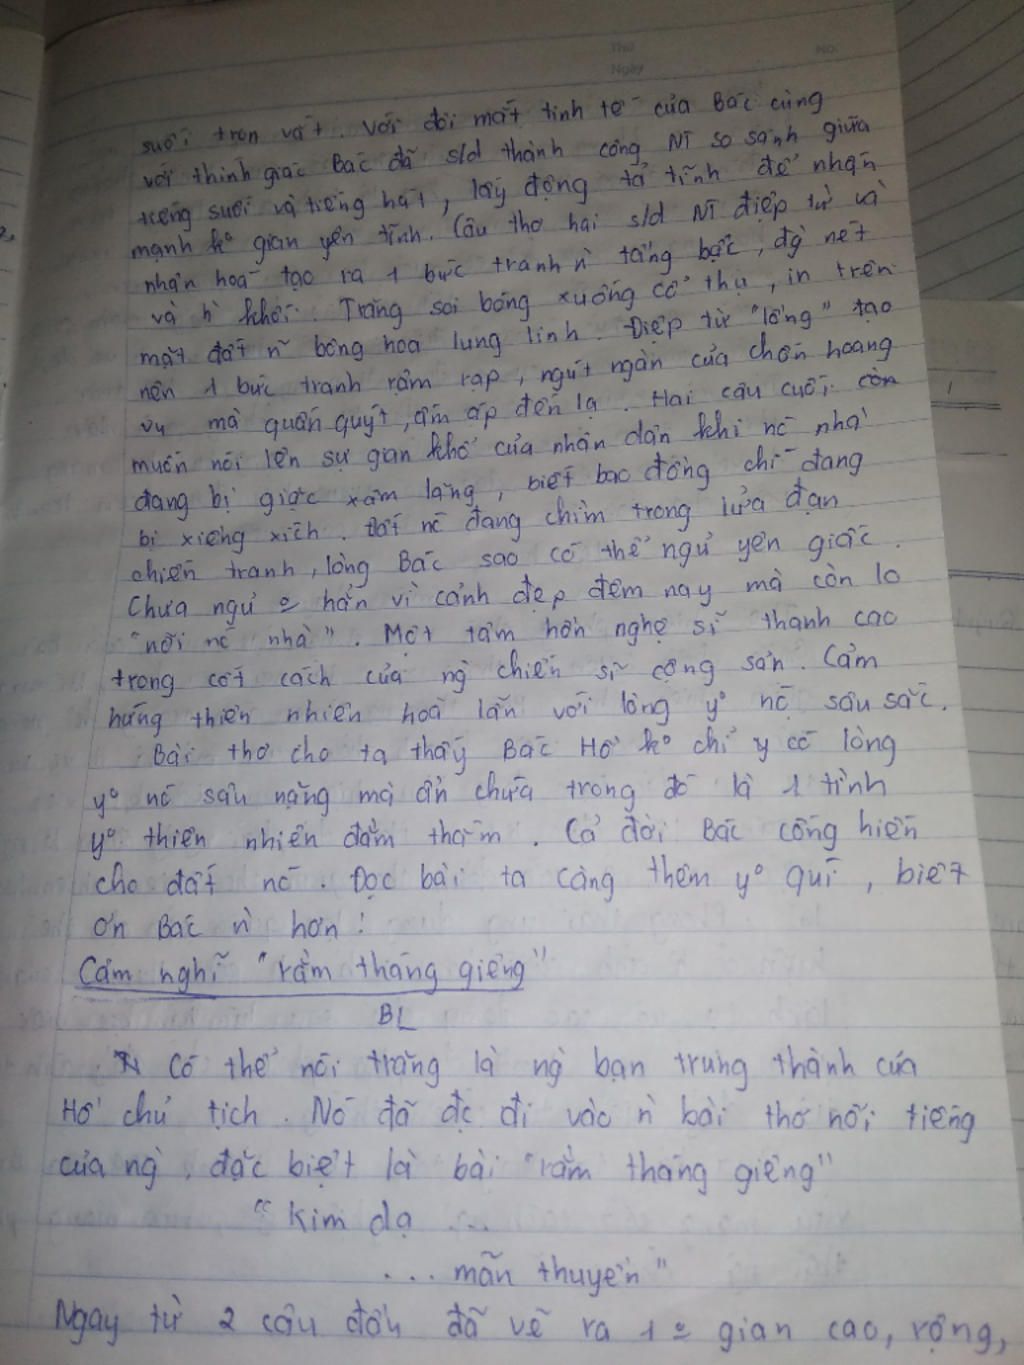 Thứ
Ngày
No.
suối tron vắt. Với đôi mắt tinh tế của Bác cùng
với thính giác Bác đã s/d thành công NT so sánh giữa
tiếng suối và tiếng hát, lấy động tả tĩnh để nhấn
mạnh ko gian yên tĩnh. Câu thơ hai s/d NT điệp từ và
nhân hoá tạo ra 1 bức tranh n` tầng bậc, đg` nét
và h` khối. Trăng soi bóng xuống cổ thụ, in trên
mặt đất n~ bông hoa lung linh. Điệp từ "lồng" tạo
nên 1 bức tranh rậm rạp, ngút ngàn của chốn hoang
vu mà quấn quýt, ấm áp đến lạ. Hai câu cuối còn
muốn nói lên sự gian khổ của nhân dân khi nc nhà
đang bị giặc xâm lăng, biết bao đồng chí đang
bị xiềng xích. Đất nc đang chìm trong lửa đạn
chiến tranh, lòng Bác sao có thể ngủ yên giấc.
Chưa ngủ o hẳn vì cảnh đẹp đêm nay mà còn lo
"nỗi nc nhà". Một tâm hồn nghệ sĩ thanh cao
trong cốt cách của ng` chiến sĩ cộng sản. Cảm
hứng thiên nhiên hoà lẫn với lòng yo nc sâu sắc.
Bài thơ cho ta thấy Bác Hồ ko chỉ y có lòng
yo nc sâu nặng mà ẩn chứa trong đó là 1 tình
yo thiên nhiên đằm thắm. Cả đời Bác cống hiến
cho đất nc. Đọc bài ta càng thêm yo quí, biết
ơn Bác n` hơn!
Cảm nghĩ "rằm tháng giêng"
BL
Có thể nói trăng là ng` bạn trung thành của
Hồ chủ tịch. Nó đã đc đi vào n` bài thơ nổi tiếng
của ng`, đặc biệt là bài "rằm tháng giêng"
"Kim dạ ...
... mãn thuyền"
Ngay từ 2 câu đầu đã vẽ ra 1 o gian cao, rộng,